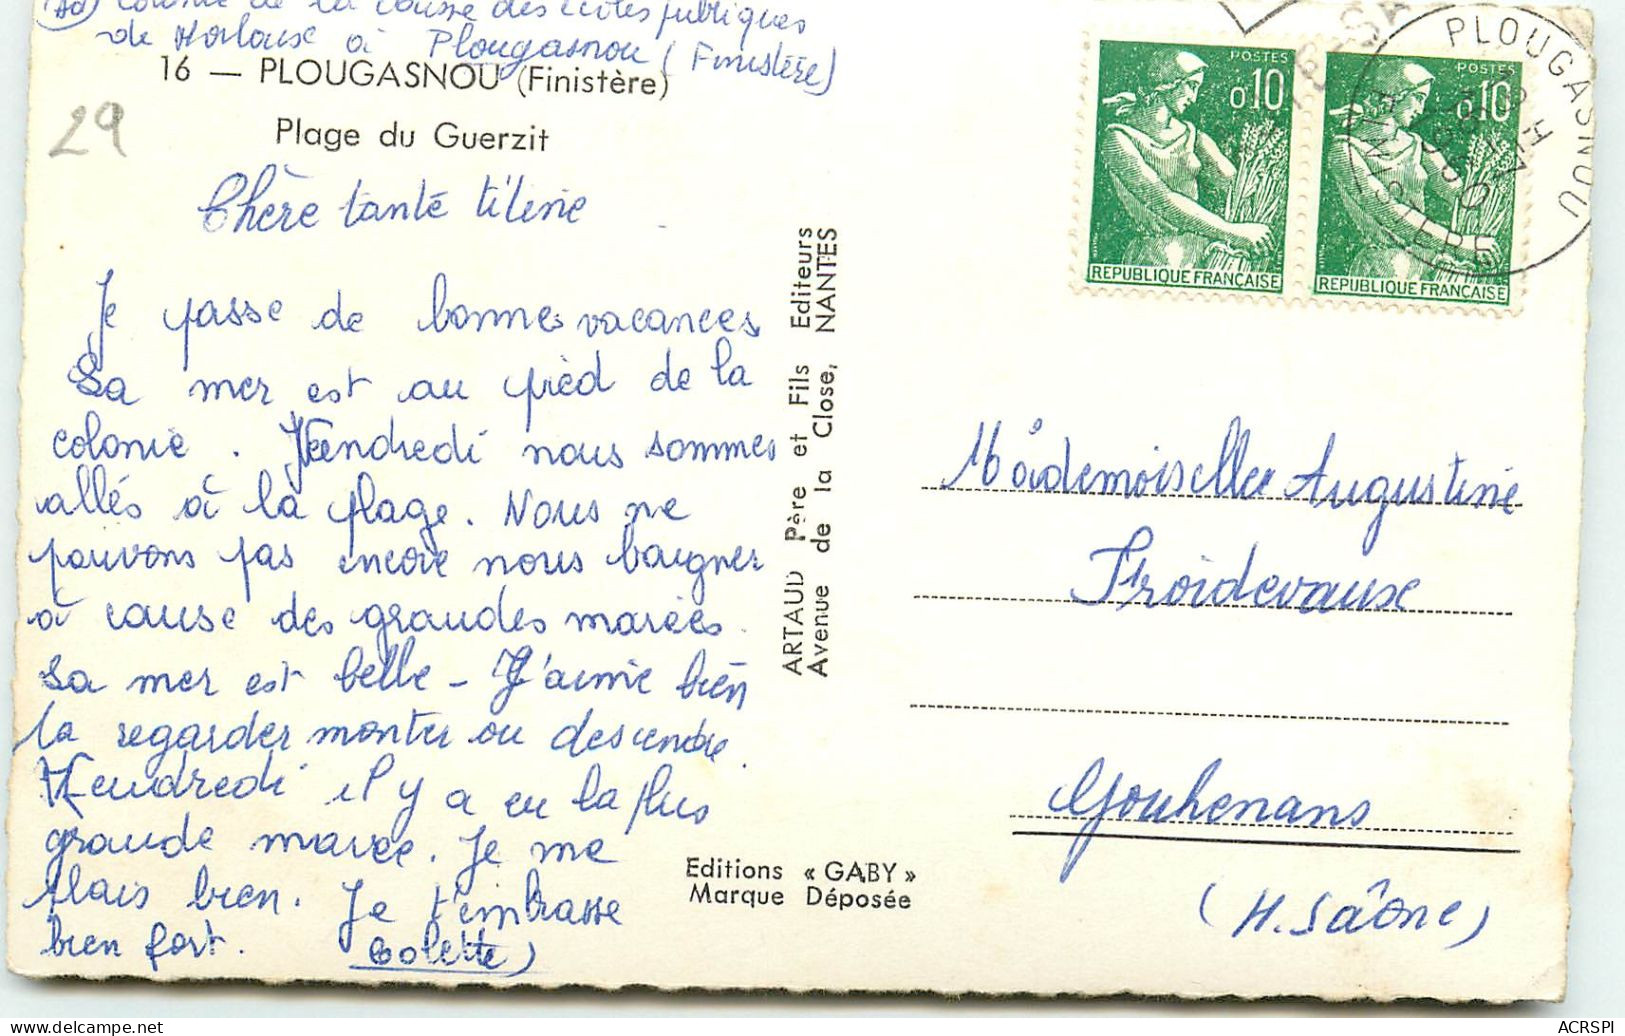 (Ad) Colonie de la caisse des écoles publiques
de Morlaix à Plougasnou (Finistère)
16 — PLOUGASNOU (Finistère)
29
Plage du Guerzit
Chère tante titine
Je passe de bonnes vacances
La mer est au pied de la
colonie. Vendredi nous sommes
allés à la plage. Nous ne
pouvons pas encore nous baigner
à cause des grandes marées.
La mer est belle - J'aime bien
la regarder monter ou descendre.
Vendredi il y a eu la plus
grande marée. Je me
plais bien. Je t'embrasse
bien fort. Colette)
ARTAUD Père et Fils Editeurs
Avenue de la Close, NANTES
Editions « GABY »
Marque Déposée
POSTES
0,10
REPUBLIQUE FRANÇAISE
POSTES
0,10
REPUBLIQUE FRANÇAISE
PLOUGASNOU
FINISTERE
Mademoiselle Augustine
Froidevaux
Gouhenans
(H. Saône)
ACRSPI